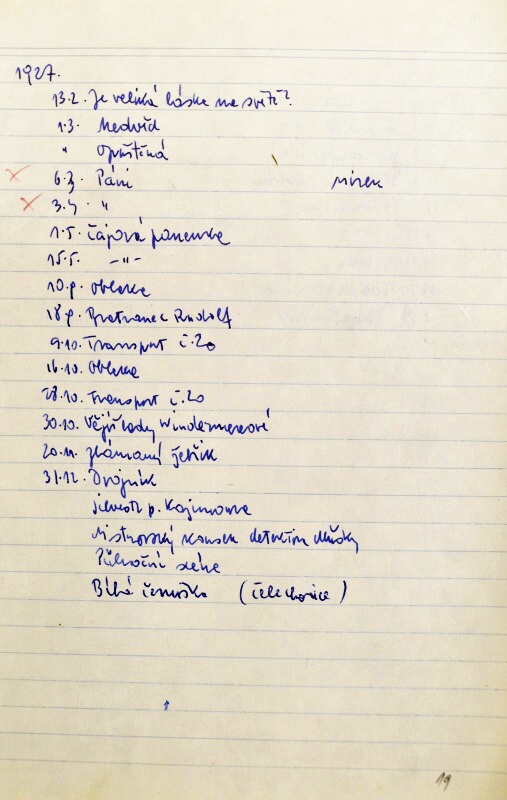 1927.
13.2. Je veliká láska na světě?
1.3. Medvěd
" Opuštěná
6.3. Páni mirek
3.4. "
1.5. Čajová panenka
15.5. -"-
10.9. Oblaka
18.9. Bratranec Rudolf
9.10. Transport č.20
16.10. Oblaka
28.10. Transport č.20
30.10. Vějíř lady Windermerové
20.11. zlámaný žebřík
31.12. Dvojník
silvestr p.
Mistrovský kousek detektiva
Půlnoční
Bílá (Čelechovice)
19